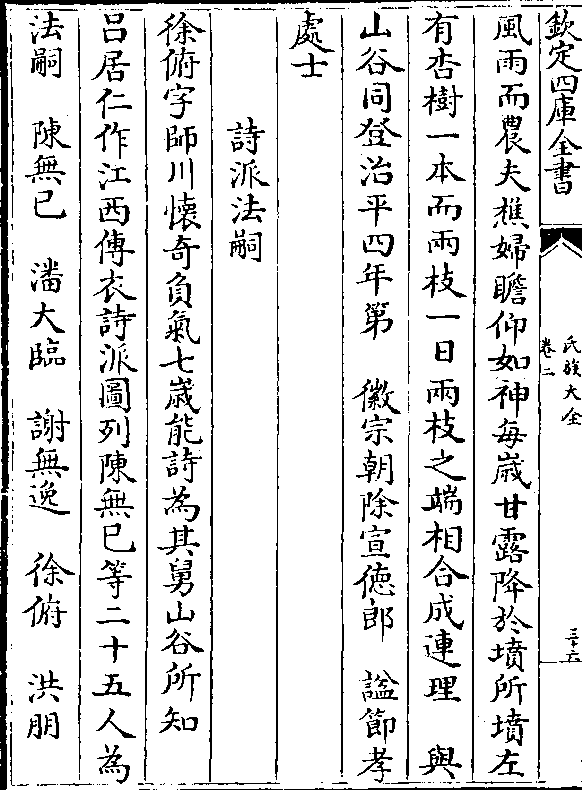 欽定四庫全書
氏族大全
卷二
三十六
風雨而農夫樵婦瞻仰如神每歲甘露降於墳所墳左
有杏樹一本而兩枝一日兩枝之端相合成連理　與
山谷同登治平四年第　徽宗朝除宣德郎　諡節孝
處士
詩派法嗣
徐俯字師川懷奇負氣七歲能詩為其舅山谷所知
呂居仁作江西傳衣詩派圖列陳無已等二十五人為
法嗣　陳無已　潘大臨　謝無逸　徐俯　洪朋